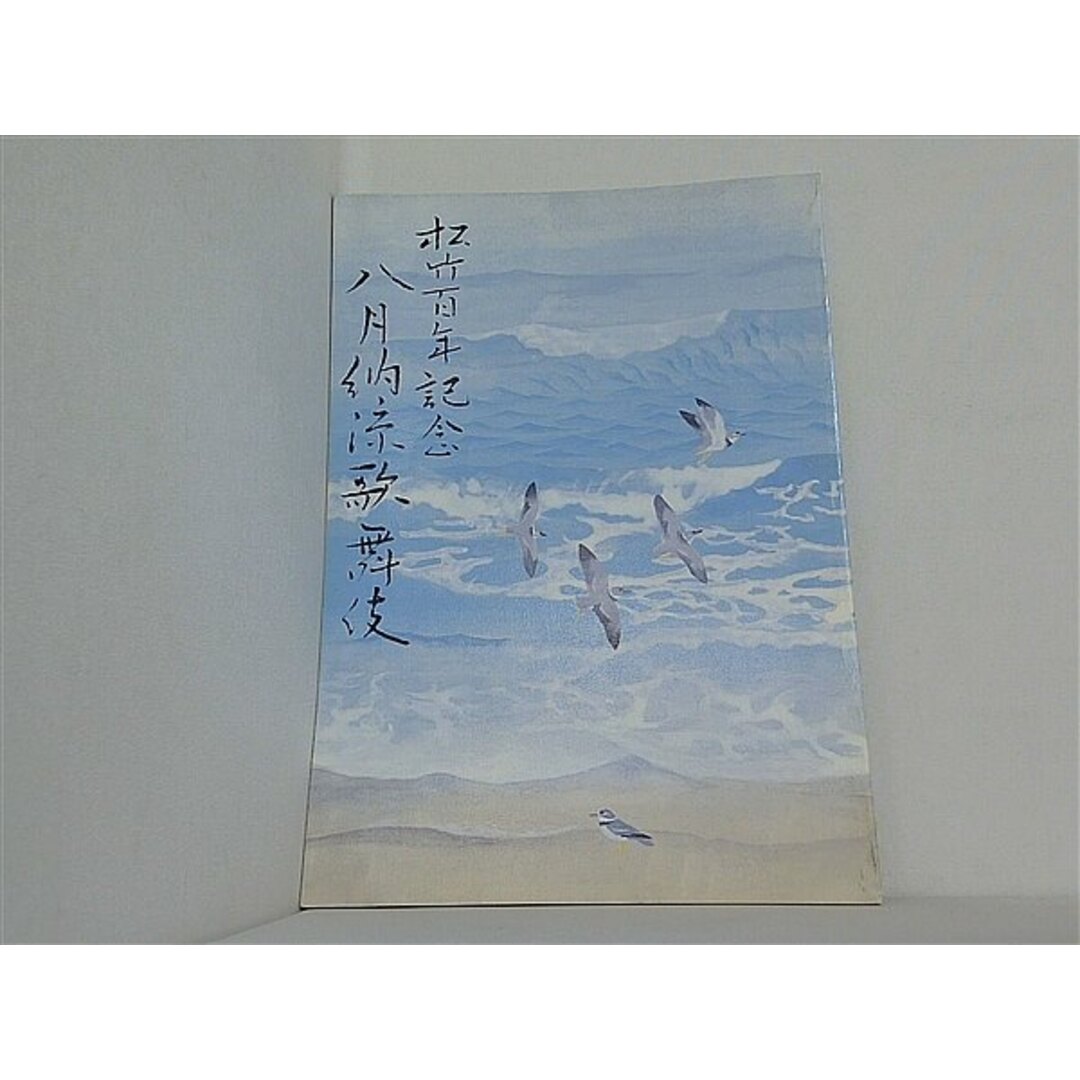 松竹百年記念
八月納涼歌舞伎